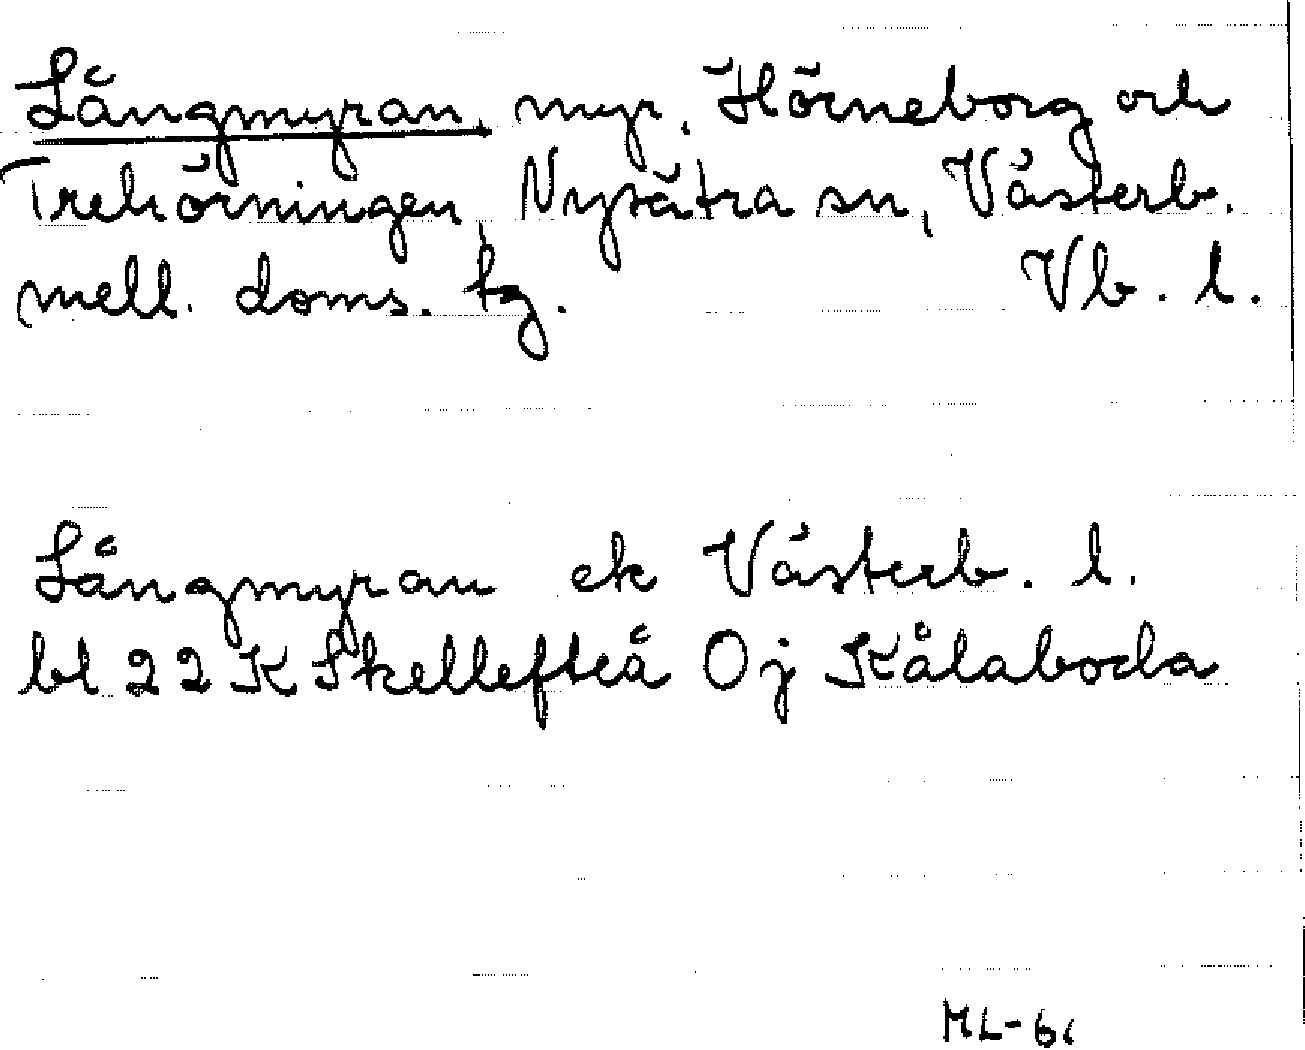 Långmyran, myr, Hörneborg och
Trehörningen, Nysätra sn, Västerb.
mell. doms. tg. Vb. l.
Långmyran ek Västerb. l.
bl 22 K Skellefteå Oj Kålaboda
ML-61